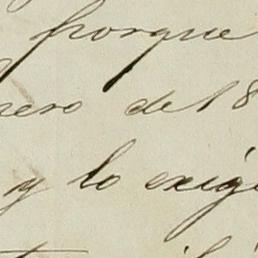 porque
nero de 18
y lo exig